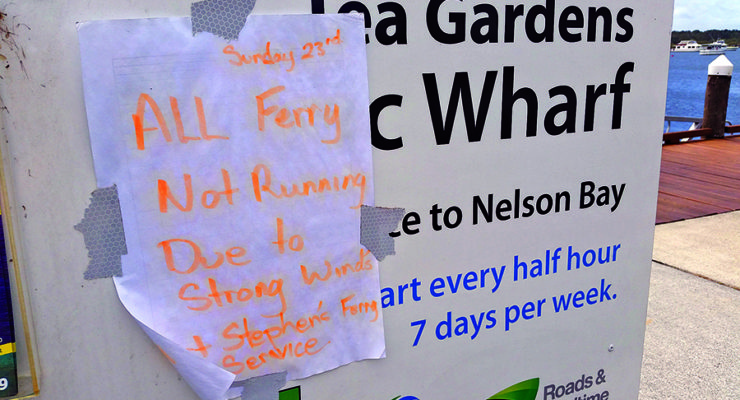 Sunday 23rd
ALL Ferry
Not Running
Due to
Strong Winds
t Stephen's Ferry
Service
Tea Gardens
c Wharf
ce to Nelson Bay
art every half hour
7 days per week.
Roads &
time
9